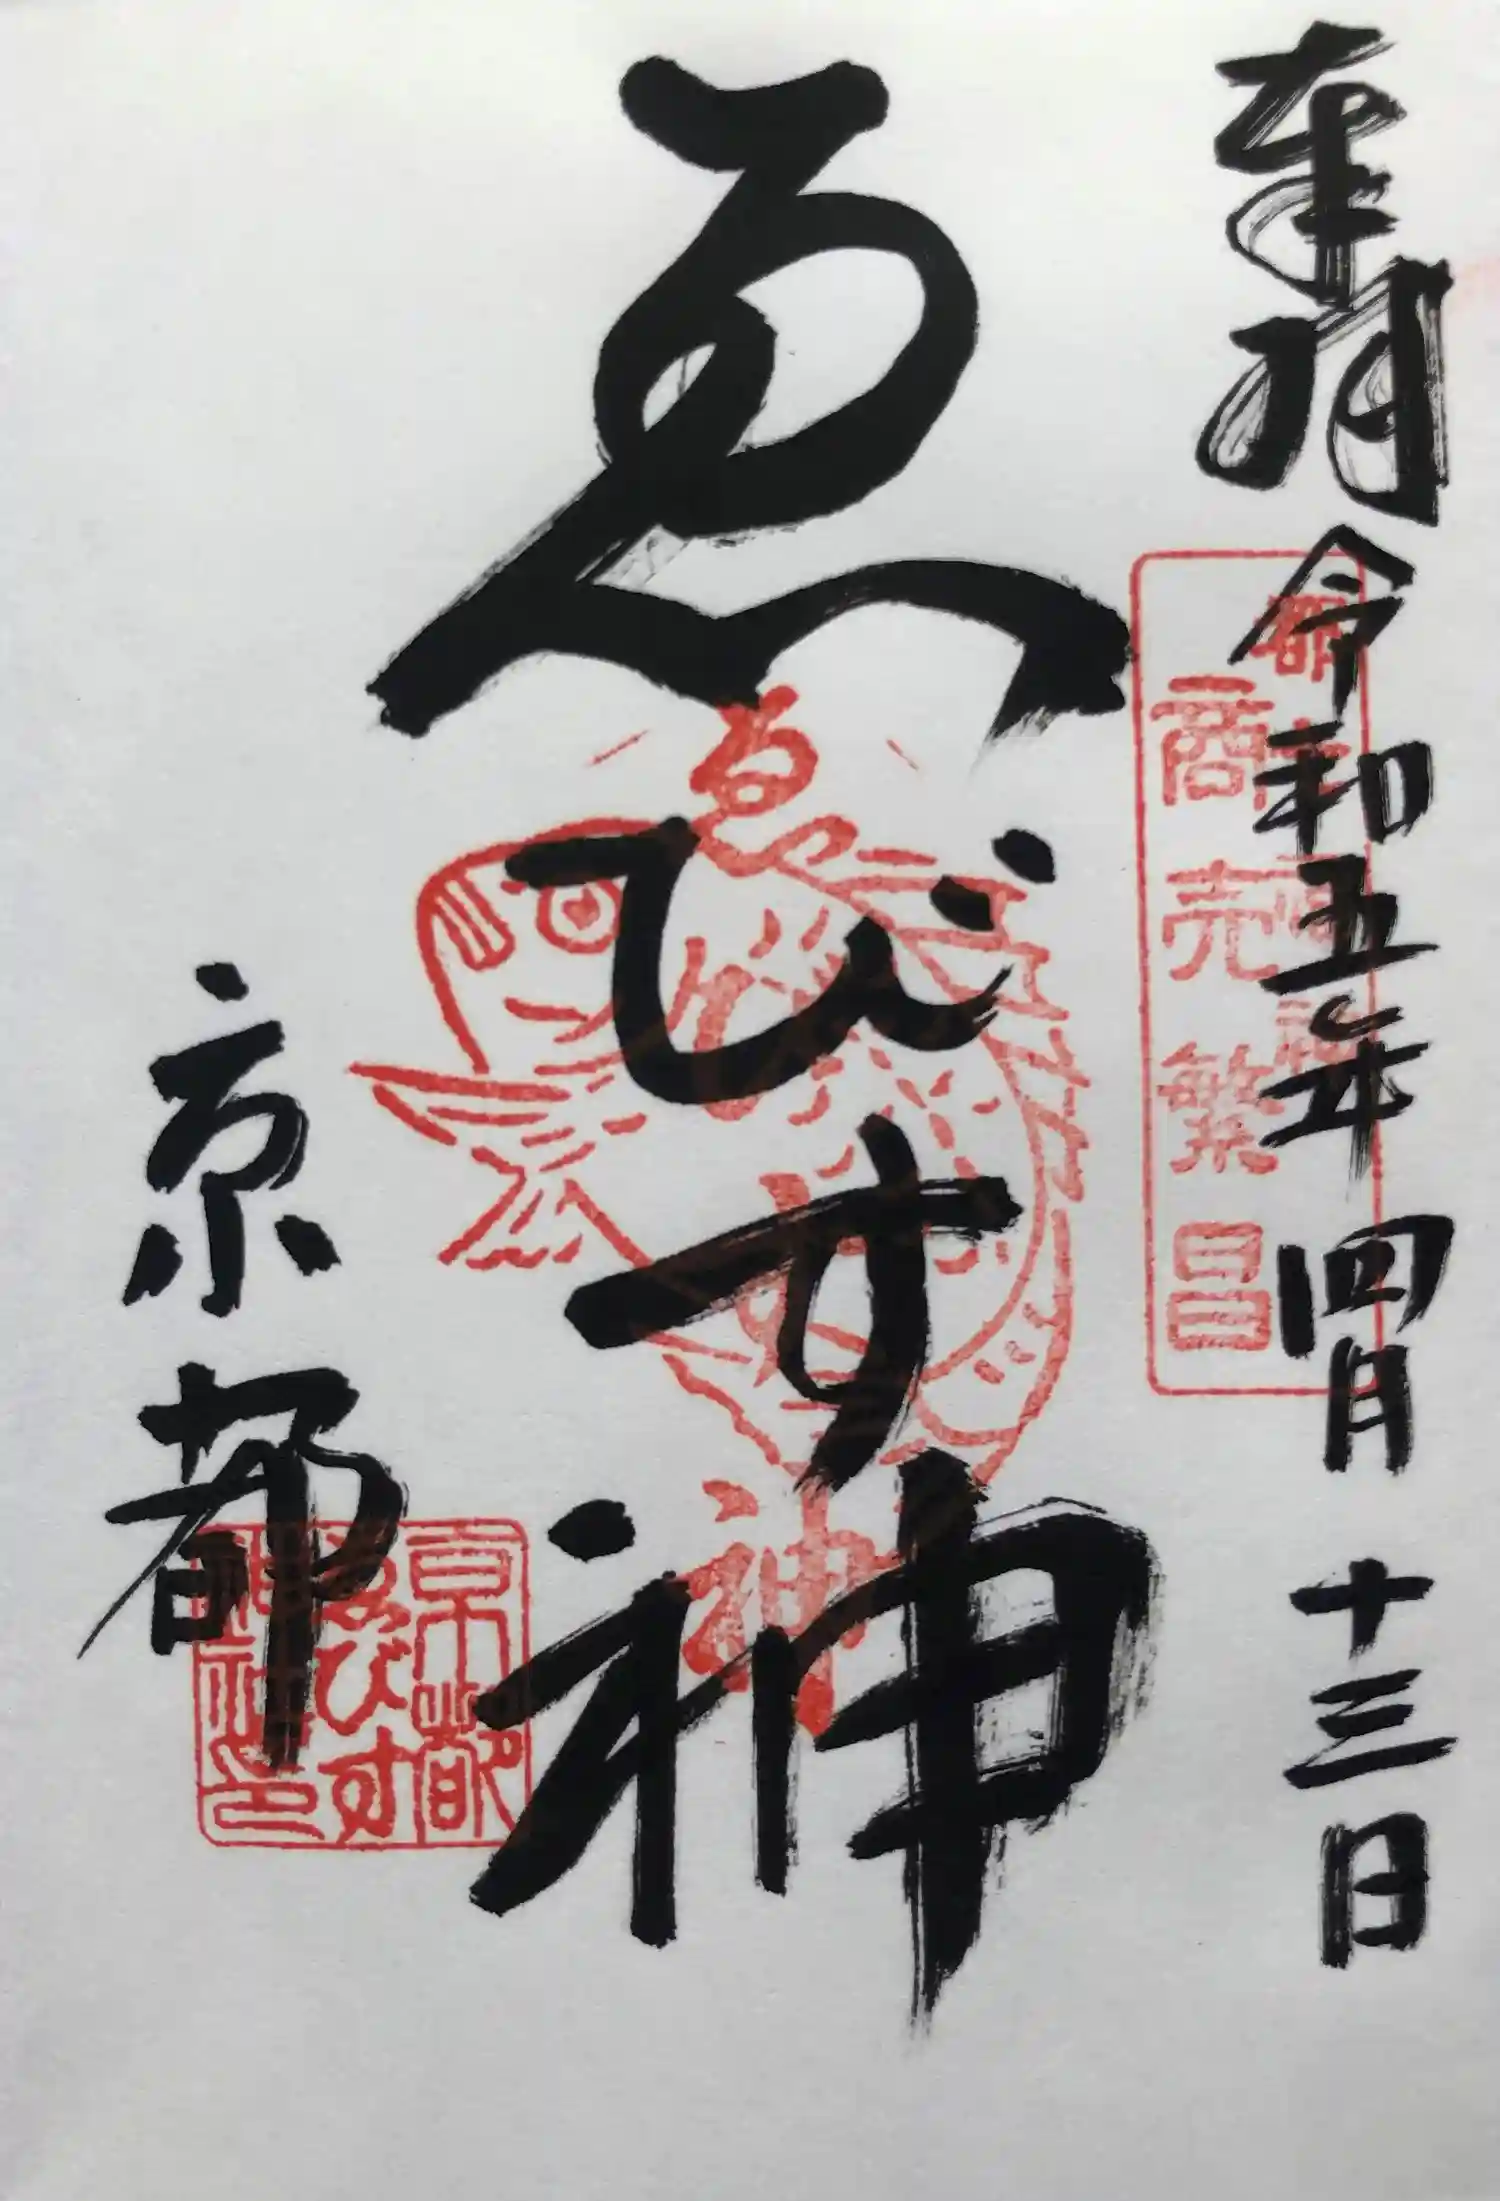 奉拝 令和五年四月十三日
都七福神
商売繁昌
ゑびす神
ゑびす神
京都
京都
ゑびす
神社印